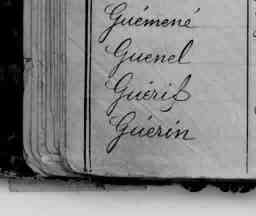 Guémené
Guenel
Guérif
Guérin